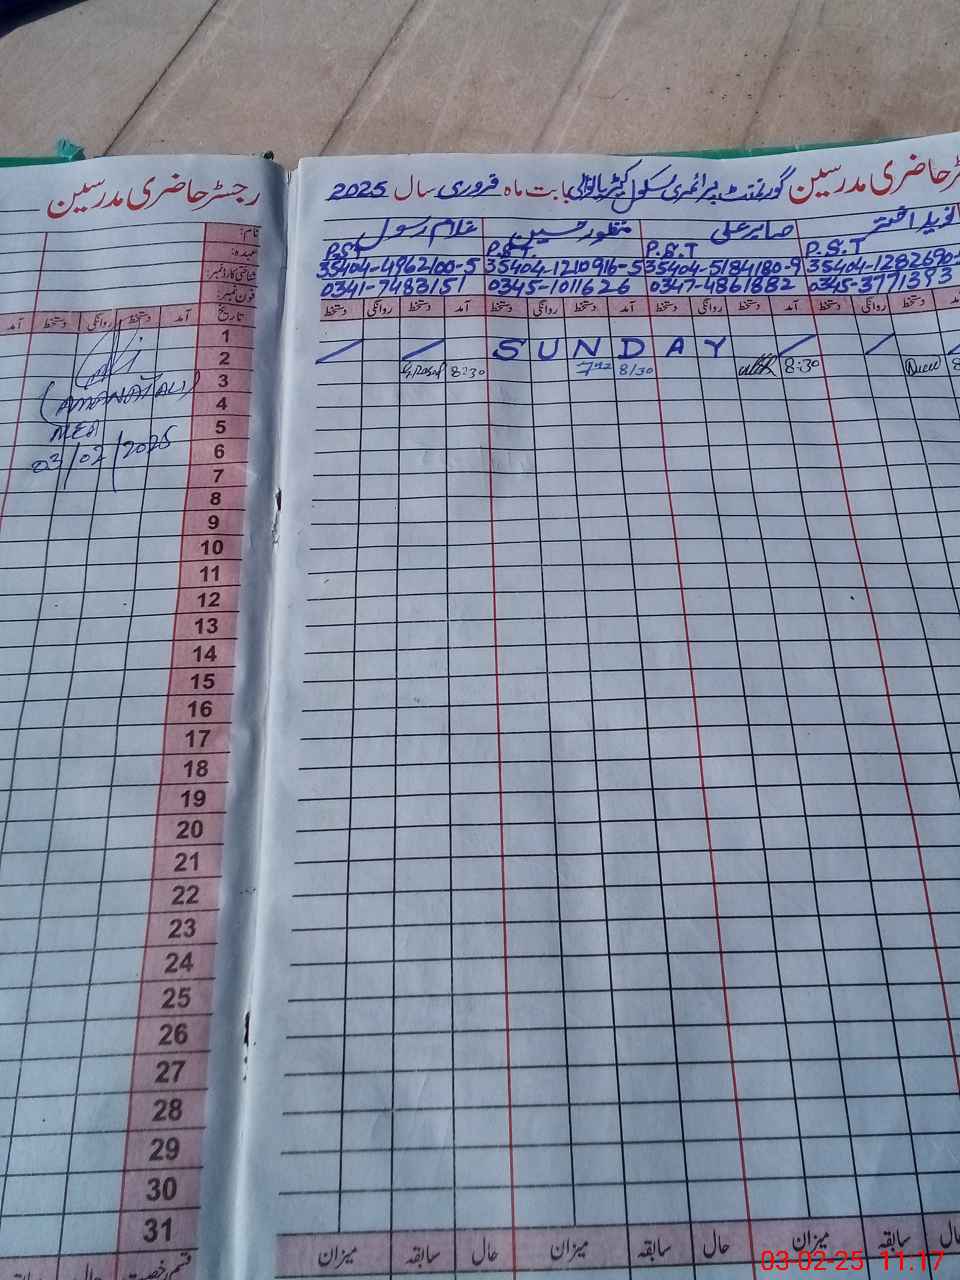 رجسٹر حاضری مدرسین
نام:
عہدہ:
شناختی کارڈ نمبر:
فون نمبر:
تاریخ آمد دستخط روانگی دستخط آمد
1
2
3
4
5
6
7
8
9
10
11
12
13
14
15
16
17
18
19
20
21
22
23
24
25
26
27
28
29
30
31
(AMANAT ALI)
MEA
03/02/2025
حاضری مدرسین گورنمنٹ پرائمری سکول بابت ماہ فروری سال 2025
نوید اختر صابر علی منظور حسین غلام رسول
P.S.T P.S.T P.S.T. P.S.T
35404-1282690- 35404-5184180-9 35404-1210916-5 35404-4962100-5
0345-3771393 0347-4861882 0345-1011626 0341-7483151
دستخط روانگی دستخط آمد دستخط روانگی دستخط آمد دستخط روانگی دستخط آمد دستخط روانگی دستخط
SUNDAY
G.Rasul 8:30 8/30 8:30
میزان سابقہ حال میزان سابقہ حال میزان سابقہ حال
حال
03-02-25 11:17